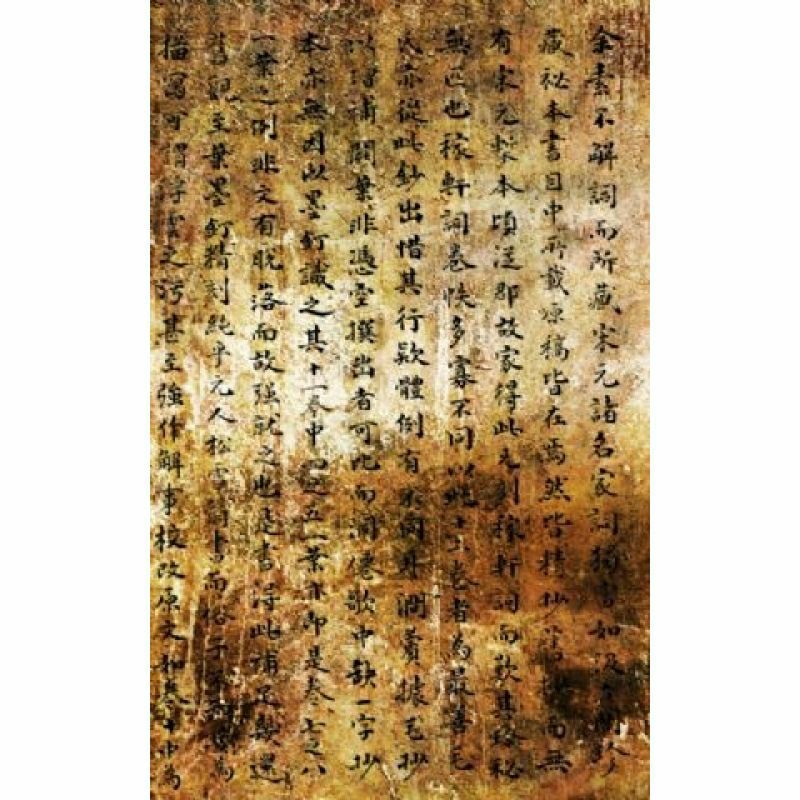 余素不解詞而所藏宋元諸名家詞獨富如汲古
藏祕本書目中所載原稿皆在焉然皆精抄舊抄而無
有宋元槧本頃從郡故家得此元刻稼軒詞而歎其珍秘
無匹也稼軒詞卷帙多寡不同以此十二卷者為最善毛
氏亦從此鈔出惜其行款體例有不同耳澗薲據毛抄
以增補闕葉非憑空撰出者可比而洞僊歌中缺一字抄
本亦無因以墨釘識之其十一卷中四之五一葉亦即是卷七之八
一葉之例非文有脫落而故強就之也是書得此補足幾還
舊觀至葉墨釘精刻純乎元人松雪翁書而俗子不知妄為
描寫可謂浮雲之污甚至強作解事校改原文如卷中為